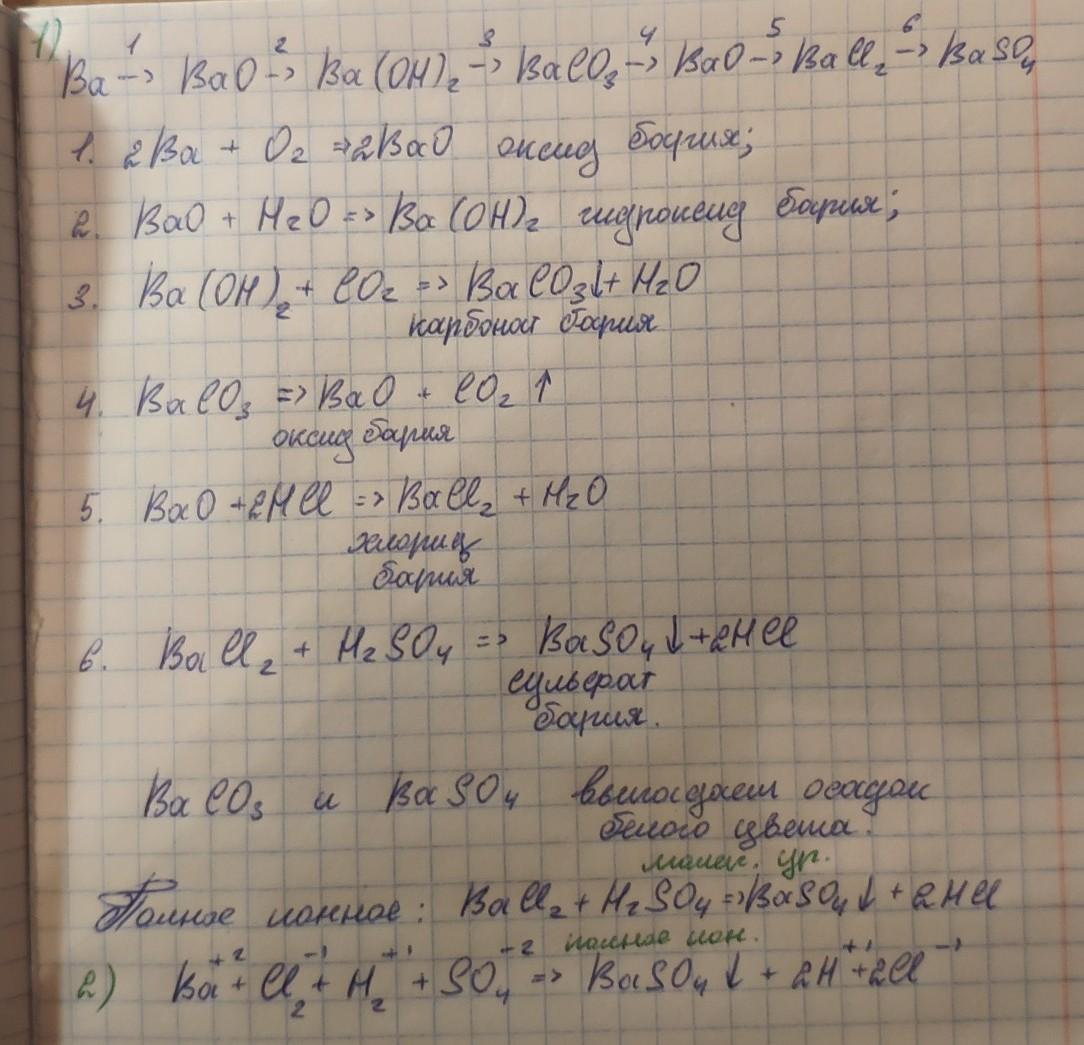 1)
1 2 3 4 5 6
Ba → BaO → Ba(OH)₂ → BaCO₃ → BaO → BaCl₂ → BaSO₄
1. 2Ba + O₂ ⇒ 2BaO оксид бария;
2. BaO + H₂O ⇒ Ba(OH)₂ гидроксид бария;
3. Ba(OH)₂ + CO₂ ⇒ BaCO₃↓ + H₂O
карбонат бария
4. BaCO₃ ⇒ BaO + CO₂ ↑
оксид бария
5. BaO + 2HCl ⇒ BaCl₂ + H₂O
хлорид
бария
6. BaCl₂ + H₂SO₄ ⇒ BaSO₄↓ + 2HCl
сульфат
бария.
BaCO₃ и BaSO₄ выпадает осадок
белого цвета.
молек. ур.
Полное ионное: BaCl₂ + H₂SO₄ ⇒ BaSO₄↓ + 2HCl
полное ион.
2) Ba⁺² + Cl₂⁻¹ + H₂⁺¹ + SO₄⁻² ⇒ BaSO₄↓ + 2H⁺¹ + 2Cl⁻¹